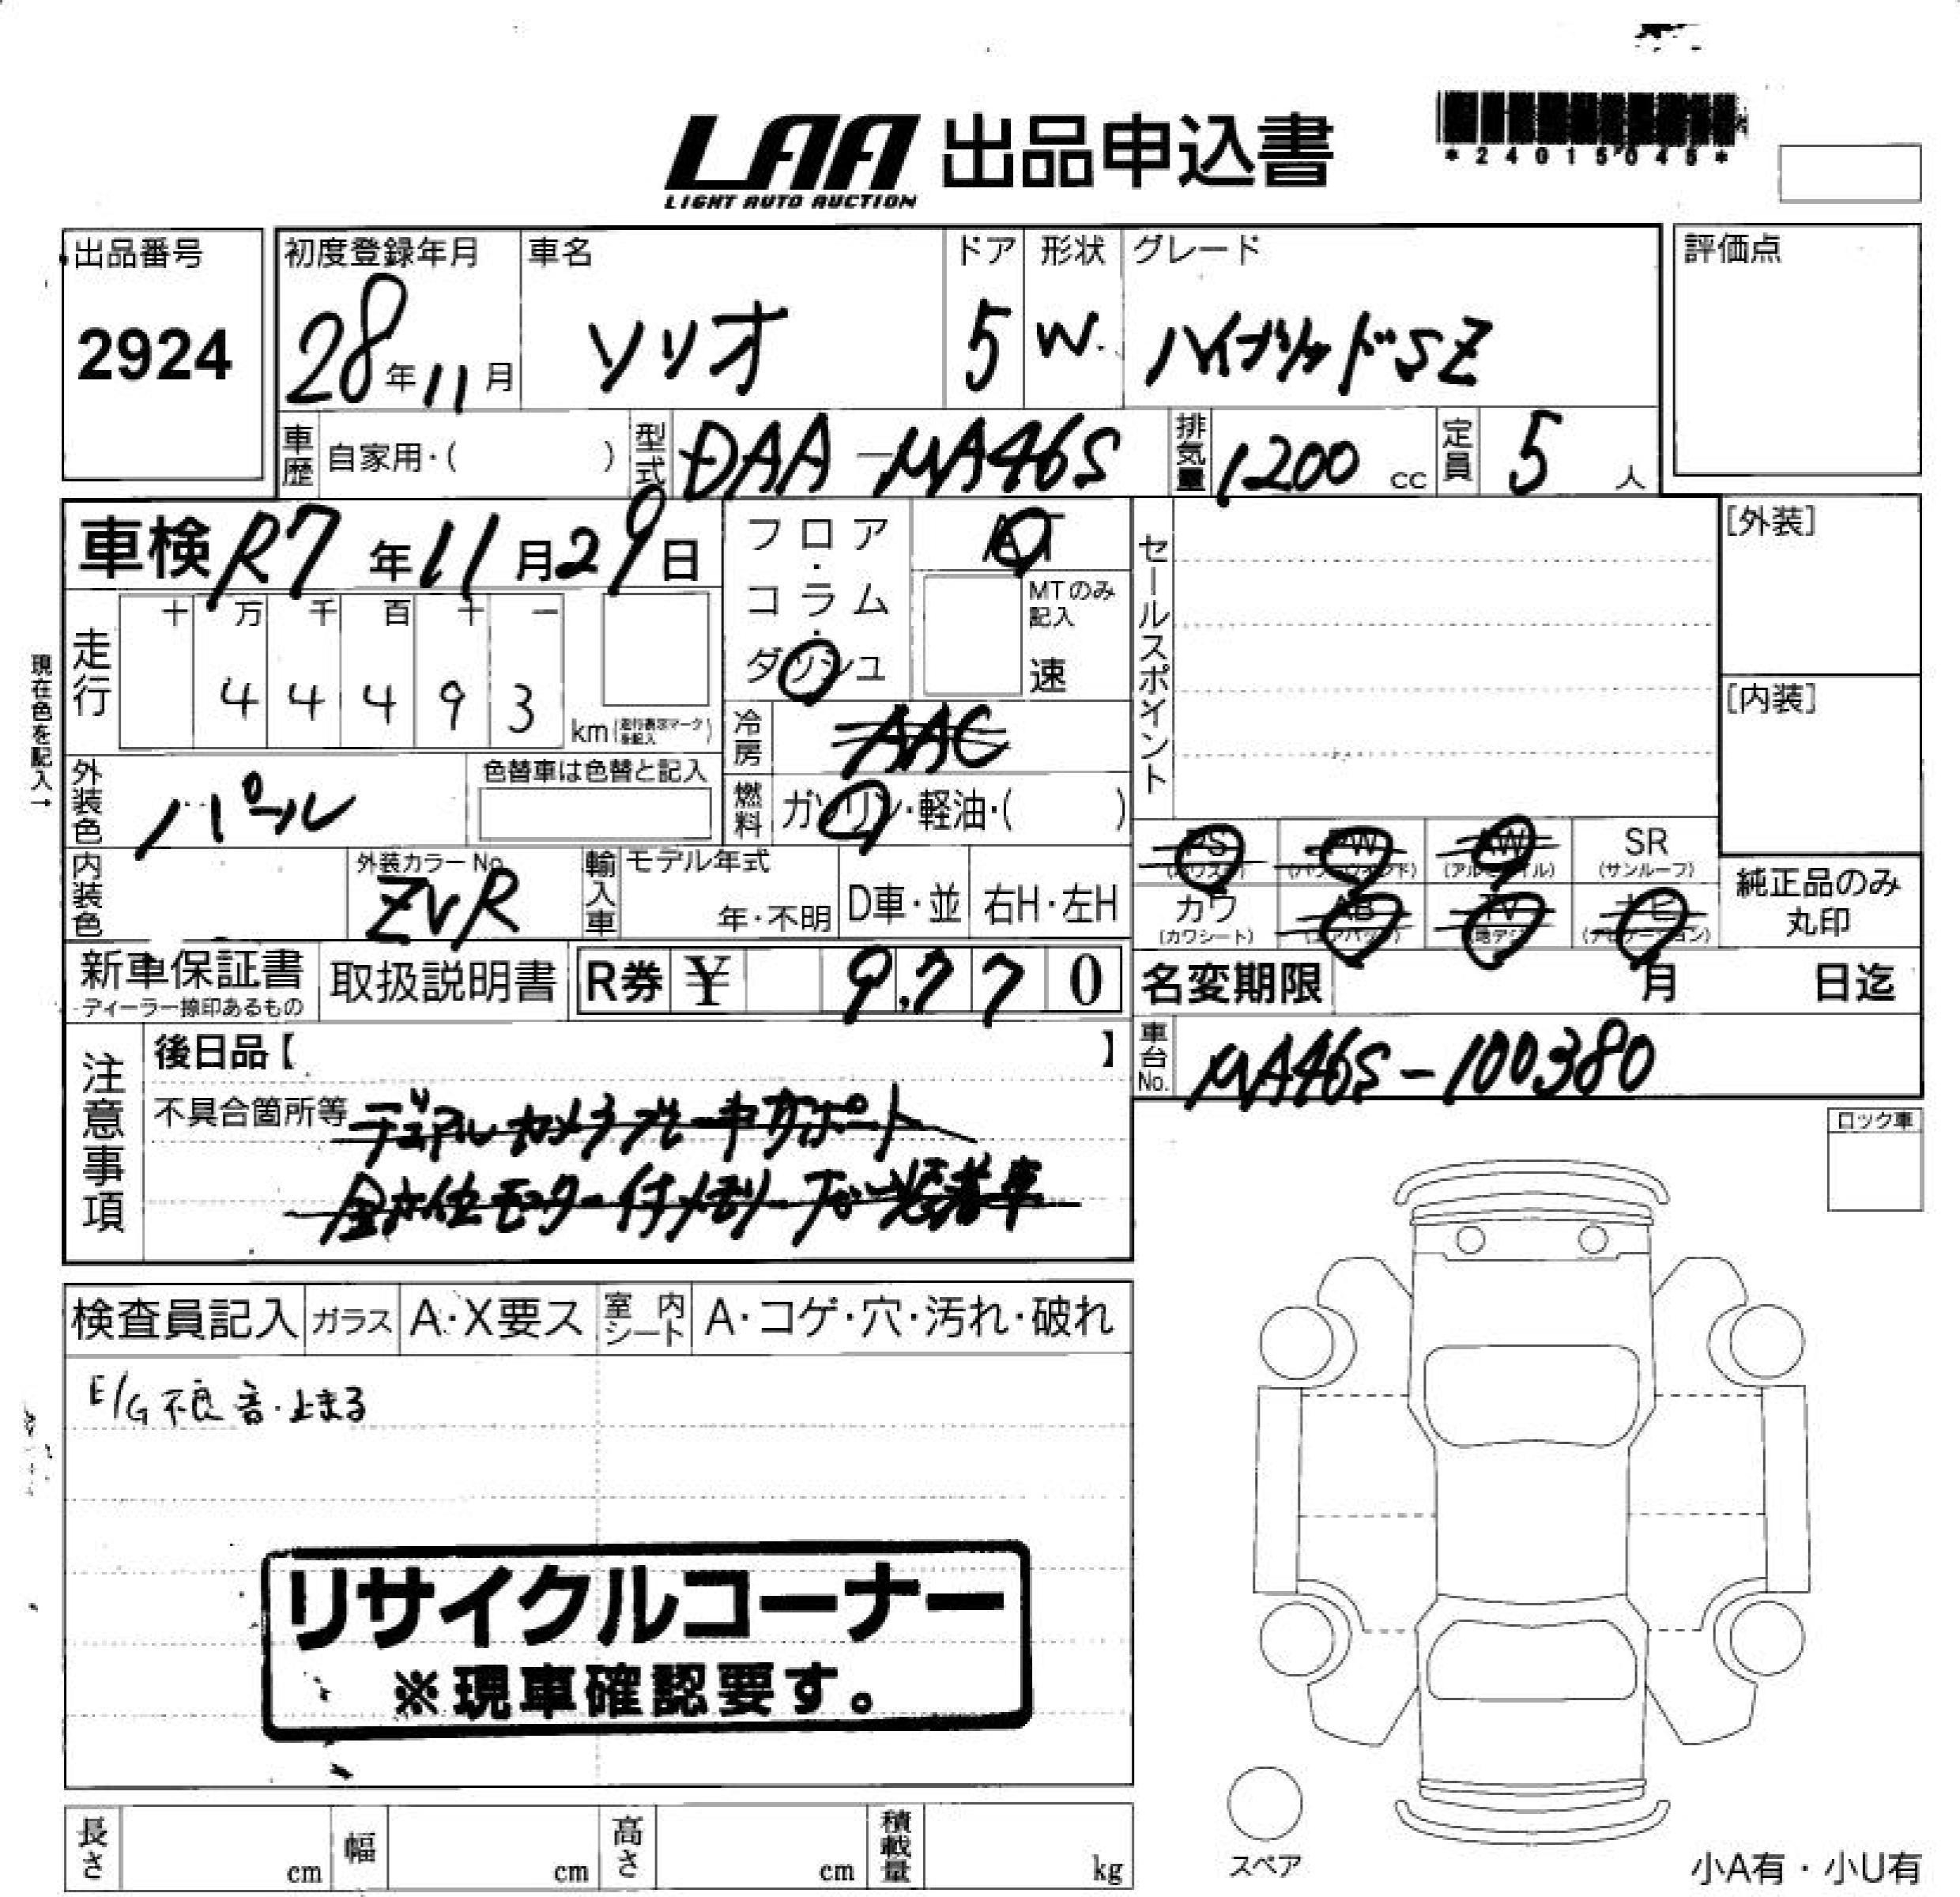 LAA 出品申込書
LIGHT AUTO AUCTION
*24015045*
出品番号
2924
初度登録年月
28年11月
車名
ソリオ
ドア
5
形状
W.
グレード
ハイブリッドSZ
評価点
車歴 自家用・( )
型式 DAA-MA46S
排気量 1200 cc
定員 5 人
車検 R7年11月29日
フロア・コラム・ダッシュ
AT
MTのみ記入
速
走行
十 万 千 百 十 一
4 4 4 9 3
km(走行表示マークを記入)
現在色を記入→
冷房 AAC
外装色 パール
色替車は色替と記入
燃料 ガソリン・軽油・( )
内装色
外装カラーNo.
ZVR
輸入車
モデル年式
年・不明
D車・並
右H・左H
セールスポイント
[外装]
[内装]
PS
(パワステ)
PW
(パワーウインド)
AW
(アルミホイル)
SR
(サンルーフ)
カワ
(カワシート)
AB
(エアバック)
TV
(地デジ)
ナビ
(ナビゲーション)
純正品のみ
丸印
新車保証書
ディーラー捺印あるもの
取扱説明書
R券 ¥ 9,770
名変期限 月 日迄
車台No. MA46S-100380
注意事項
後日品【 】
不具合箇所等 デュアルカメラブレーキサポート
全方位モニター付メモリーナビ装着車
ロック車
検査員記入 ガラス A・X要ス 室内シート A・コゲ・穴・汚れ・破れ
E/G不良 音・止まる
リサイクルコーナー
※現車確認要す。
長さ cm
幅 cm
高さ cm
積載量 kg
スペア
小A有・小U有